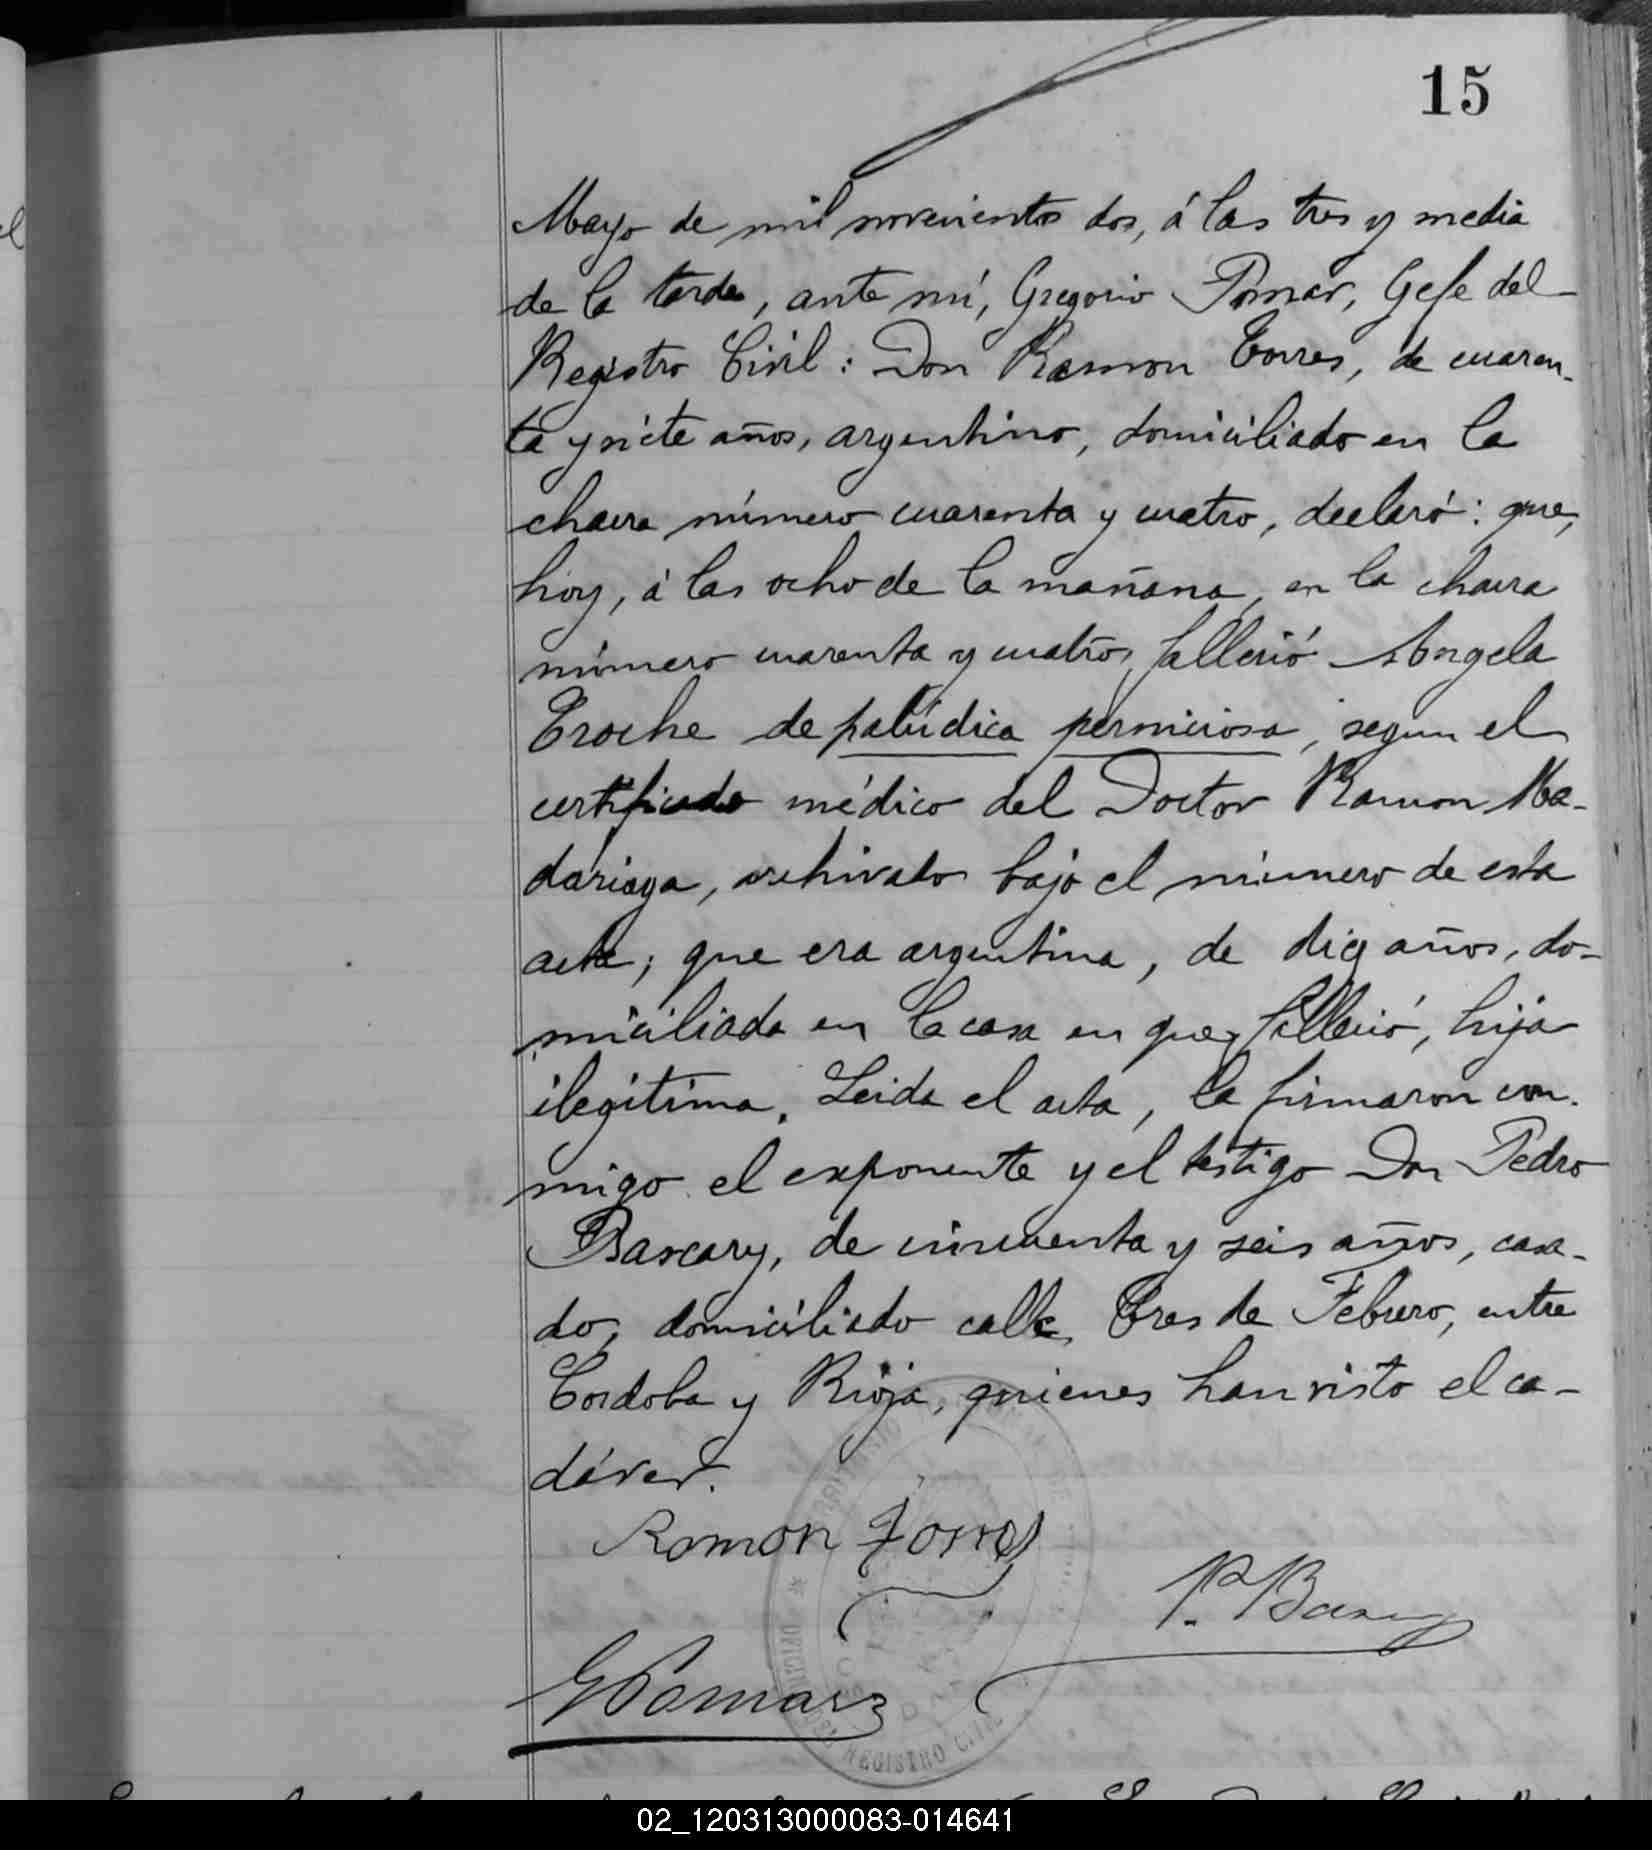 15
Mayo de mil novecientos dos, á las tres y media
de la tarde, ante mí, Gregorio Pomar, Gefe del
Registro Civil: Don Ramon Torres, de cuaren-
ta y siete años, argentino, domiciliado en la
chacra número cuarenta y cuatro, declaró: que,
hoy, á las ocho de la mañana, en la chacra
número cuarenta y cuatro, falleció Angela
Troche de palúdica perniciosa, segun el
certificado médico del Doctor Ramon Ma-
dariaga, archivado bajo el número de esta
acta; que era argentina, de diez años, do-
miciliada en la casa en que falleció, hija
ilegítima. Leida el acta, la firmaron con-
migo el exponente y el testigo Don Pedro
Bascary, de cincuenta y seis años, casa-
do, domiciliado calle Tres de Febrero, entre
Cordoba y Rioja, quienes han visto el ca-
dáver.
Ramon Torres
P. Bascary
G Pomar
REGISTRO CIVIL
02_120313000083-014641